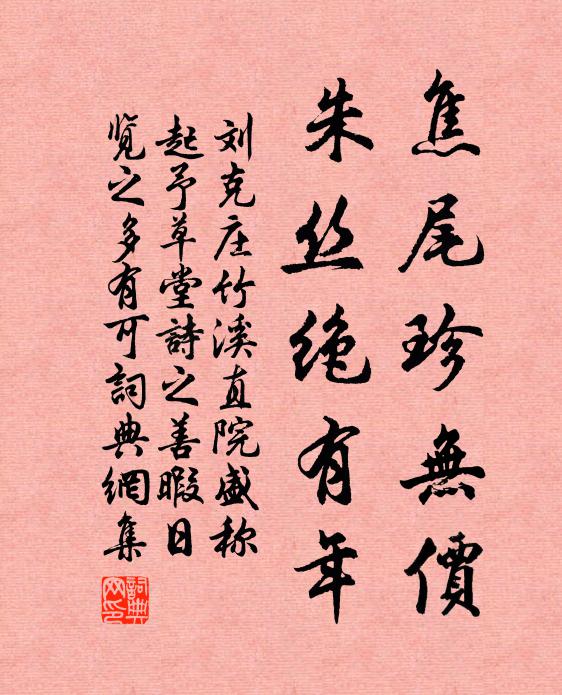 焦尾珍無價
朱丝绝有年
刘克庄竹溪直院盛称
起予草堂詩之善暇日
览之多有可詞典網集
詞典网印